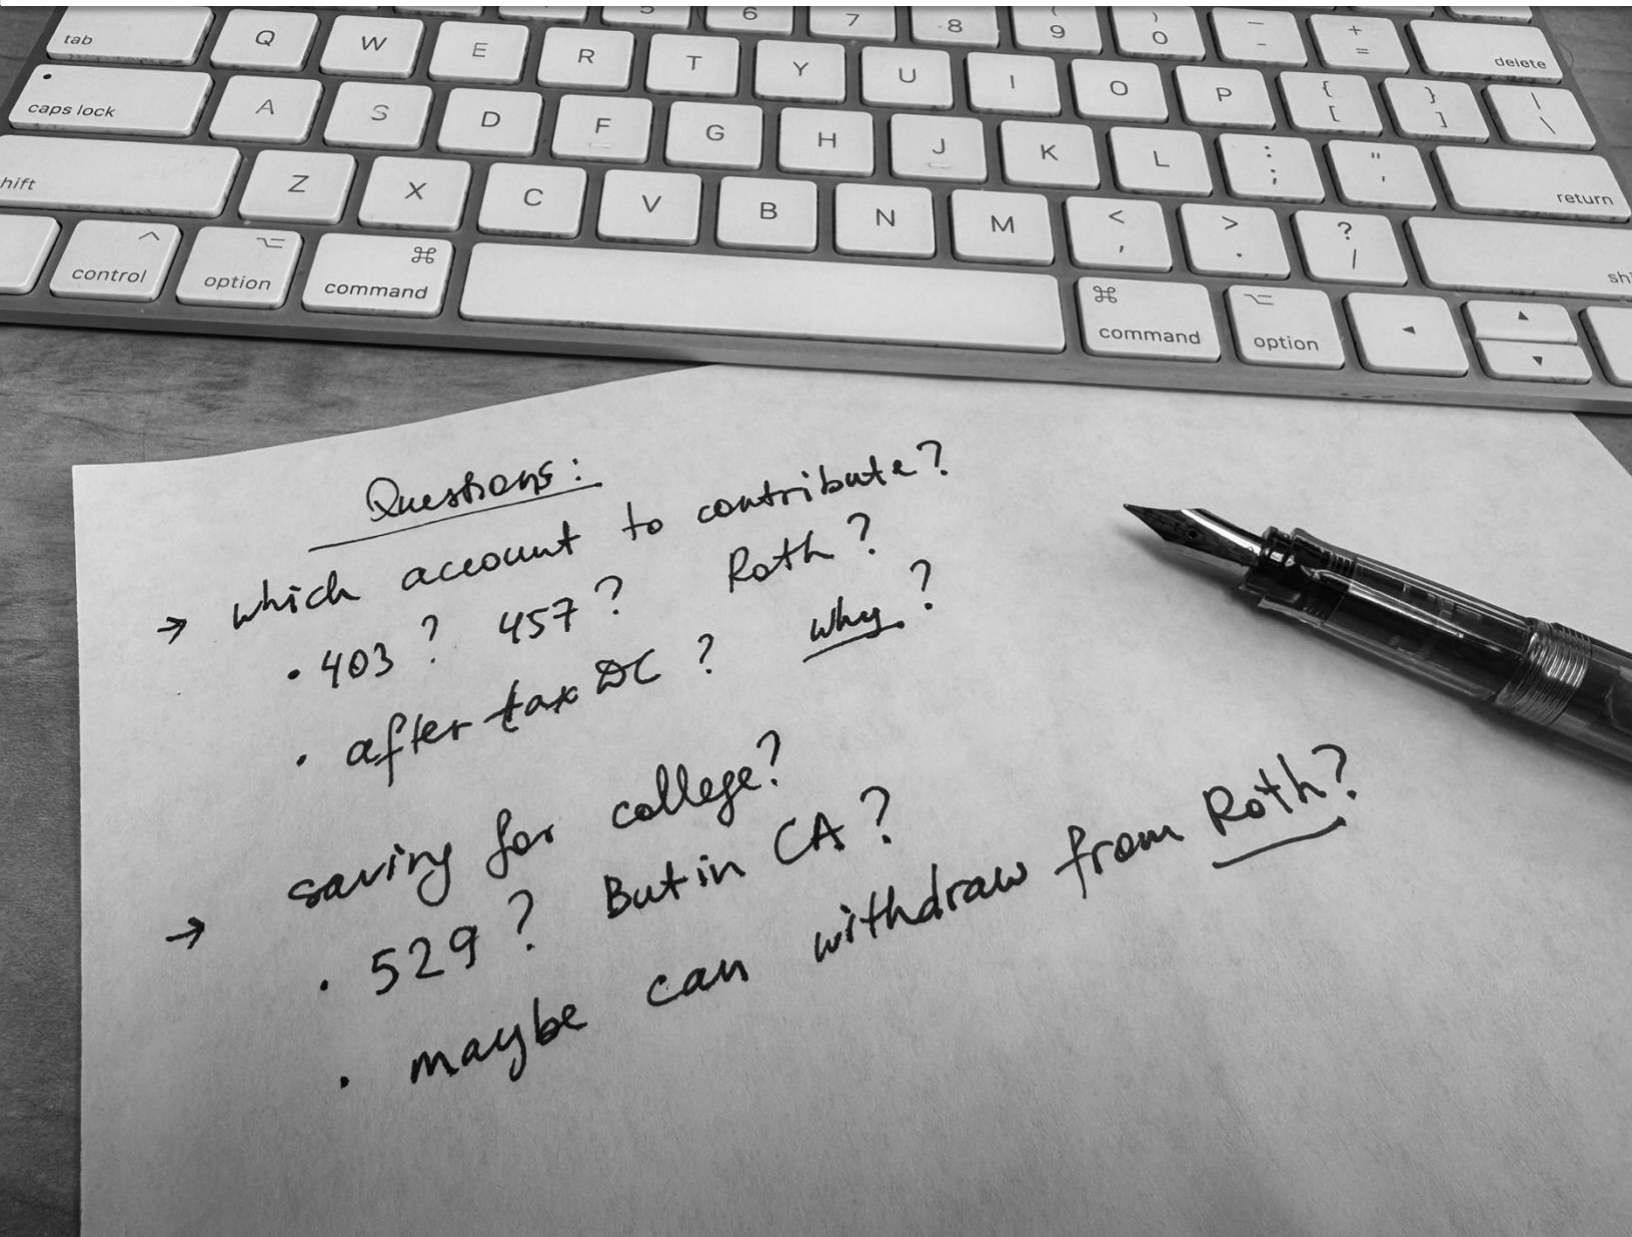 5 6 7 8 ( 9 ) 0 _ - + =
tab Q W E R T Y U I O P { [ } ] | \ delete
caps lock A S D F G H J K L : ; " ' return
hift Z X C V B N M < , > . ? / shi
control option ⌘ command ⌘ command option
Questions:
→ which account to contribute?
• 403? 457? Roth?
• after-tax DC? why?
→ saving for college?
• 529? But in CA?
• maybe can withdraw from Roth?